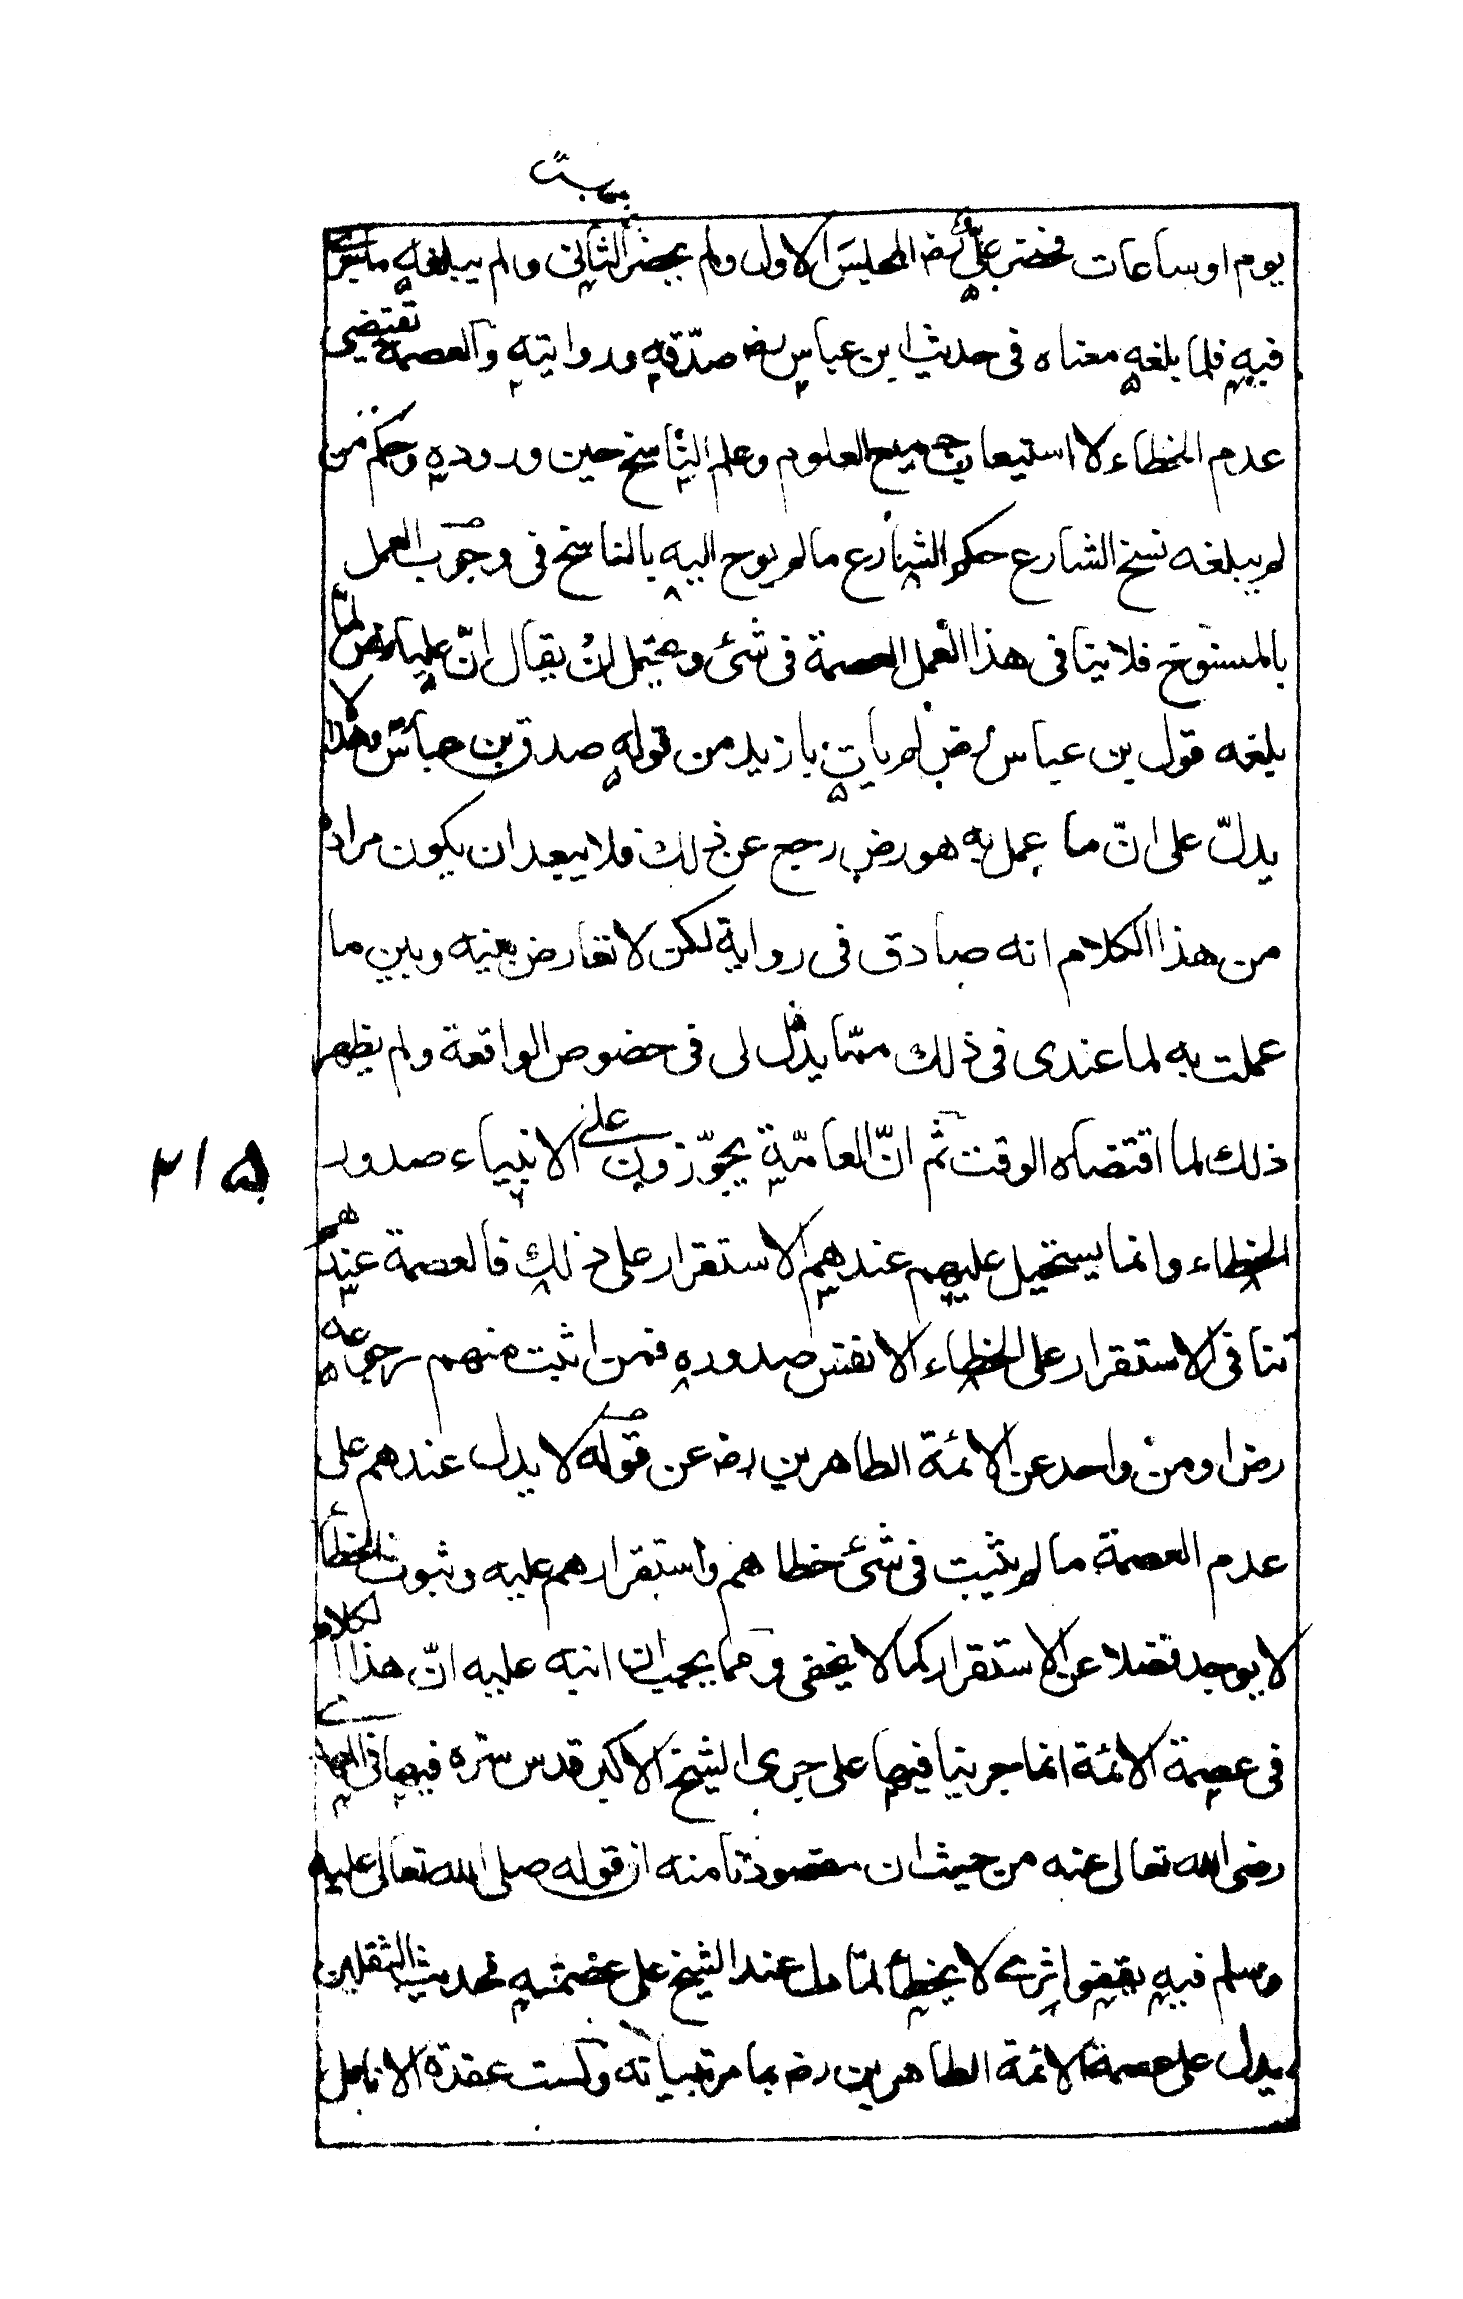 يوم او ساعات فحضر علي رض المجلس الاول ولم يحضر الثاني ولم يبلغه ما نسخ
فيه فلما بلغه معناه في حديث ابن عباس رض صدّقه ورواية والعصمة تقتضي
عدم الخطاء لا استيعاب جميع العلوم وعلم الناسخ حين وروده وحكم من
لم يبلغه نسخ الشارع حكم الشارع ما لم يوح اليه بالناسخ في وجوب العمل
بالمنسوخ فلا ينافي هذا العمل العصمة في شئ ويحتمل ان يقال انّ عليا رض لما
بلغه قول بن عباس رض لم يات بازيد من قوله صدق بن عباس وهذا لا
يدلّ على انّ ما عمل به هو رض رجع عن ذلك فلا يبعد ان يكون مراده
من هذا الكلام انه صادق في رواية لكن لا تعارض بينه وبين ما
عملت به لما عندي في ذلك ممّا يدل لى في خصوص الواقعة ولم يظهر
ذلك لما اقتضاه الوقت ثم انّ العامّة يجوّزون على الانبياء صدور
الخطاء وانما يستحيل عليهم عندهم الاستقرار على ذلك فالعصمة عندهم
تنافي الاستقرار على الخطاء لا نفس صدوره فمن اثبت منهم رجوعه
رض او من واحد عن الائمة الطاهرين رض عن قوله لا يدل عندهم على
عدم العصمة ما لم يثبت في شئ خطاهم واستقرارهم عليه وثبوت الخطأ
لا يوجد فضلا عن الاستقرار كما لا يخفى ومما يجب ان انبه عليه انّ هذا الكلام
في عصمة الائمة انما جرينا فيها على جرى الشيخ الاكبر قدس سره فيها في
رضى الله تعالى عنه من حيث ان مقصودنا منه ان قوله صلى الله تعالى عليه
وسلم فيه يقفوا اثرى لا يخطأ لمّا دل عند الشيخ على عصمته فحديث الثقلين
يدل على عصمة الائمة الطاهرين رض بما مر تبيانه وليست عقدة الانامل
٢١٥